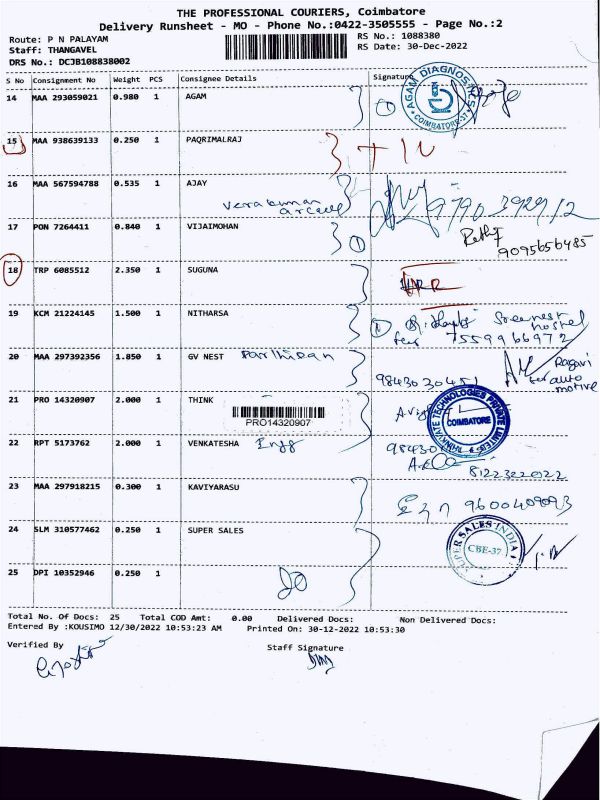 THE PROFESSIONAL COURIERS, Coimbatore
Delivery Runsheet - MO - Phone No.:0422-3505555 - Page No.:2
Route: P N PALAYAM
RS No.: 1088380
Staff: THANGAVEL
RS Date: 30-Dec-2022
DRS No.: DCJB108838002
S No Consignment No Weight PCS Consignee Details Signature
14 MAA 293059021 0.980 1 AGAM
AGAM DIAGNOSTICS COIMBATORE-37
15 MAA 938639133 0.250 1 PAQRIMALRAJ
16 MAA 567594788 0.535 1 AJAY
9790392912
17 PON 7264411 0.840 1 VIJAIMOHAN
9095656485
18 TRP 6085512 2.350 1 SUGUNA
19 KCM 21224145 1.500 1 NITHARSA
Sreenest hostel
7559966972
20 MAA 297392356 1.850 1 GV NEST Parthiban
Ragavi
automotive
9843030451
21 PRO 14320907 2.000 1 THINK
PRO14320907
THINKTATE TECHNOLOGIES PRIVATE LIMITED COIMBATORE
22 RPT 5173762 2.000 1 VENKATESHA Engg
8122322022
23 MAA 297918215 0.300 1 KAVIYARASU
9600409093
24 SLM 310577462 0.250 1 SUPER SALES
SUPER SALES INDIA CBE-37
25 DPI 10352946 0.250 1
Total No. Of Docs: 25 Total COD Amt: 0.00 Delivered Docs: Non Delivered Docs:
Entered By :KOUSIMO 12/30/2022 10:53:23 AM Printed On: 30-12-2022 10:53:30
Verified By
Staff Signature